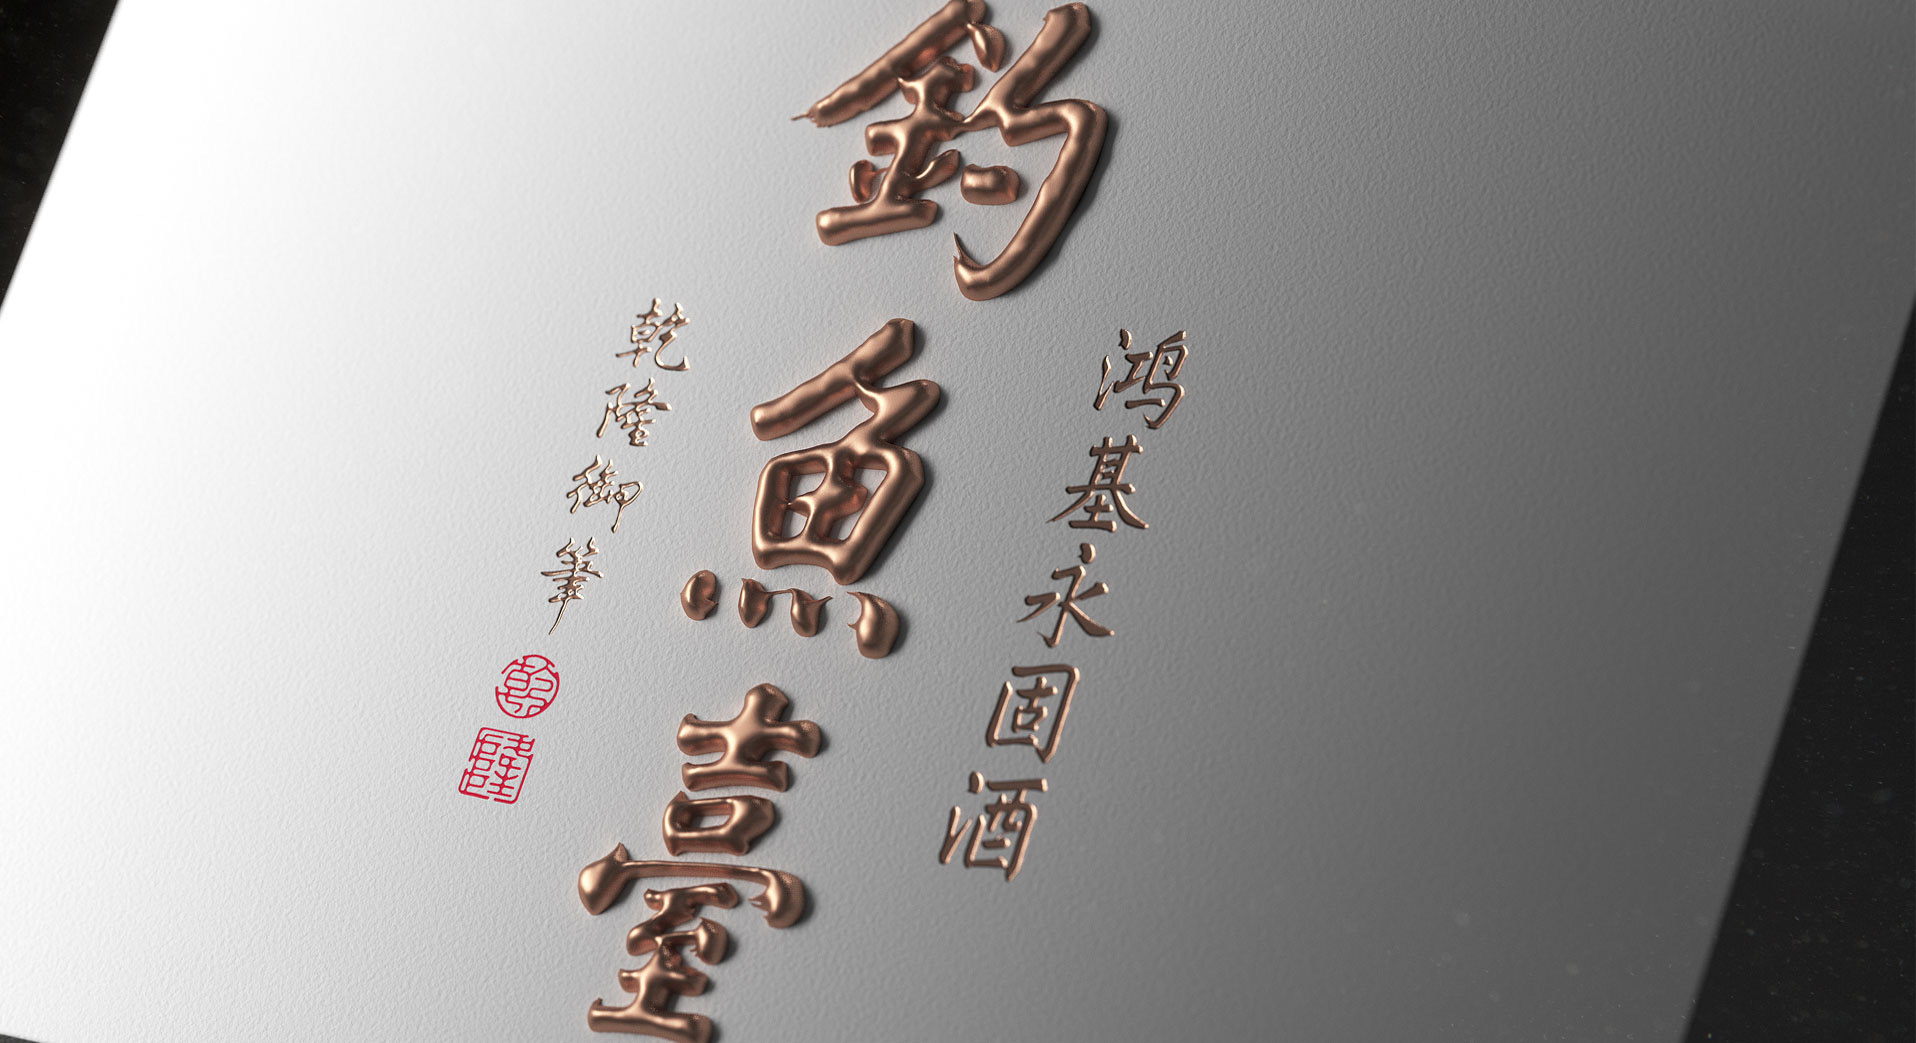 鸿基永固酒
釣魚臺
乾隆御筆
乾
隆